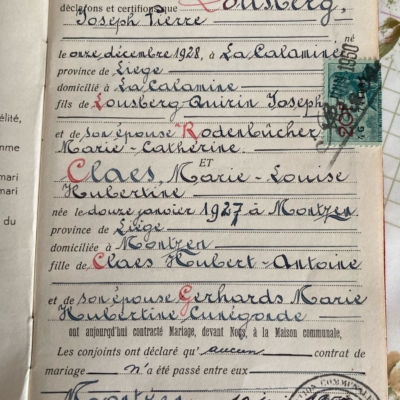 déclarons et certifions que Lousberg,
Joseph Pierre
né
le onze décembre 1928, à La Calamine
province de Liège
domicilié à La Calamine
fils de Lousberg Quirin Joseph
et de son épouse Rodenbücher
Marie-Catherine.
ET
Claes, Marie-Louise
Hubertine
née le douze janvier 1927 à Montzen
province de Liège
domiciliée à Montzen
fille de Claes Hubert-Antoine
et de son épouse Gerhards Marie
Hubertine Cunégonde
ont aujourd'hui contracté Mariage, devant Nous, à la Maison communale,
Les conjoints ont déclaré qu'aucun contrat de
mariage n'a été passé entre eux
Montzen
élité,
mme
mari
mari
du
1960
20
COMMUNALE